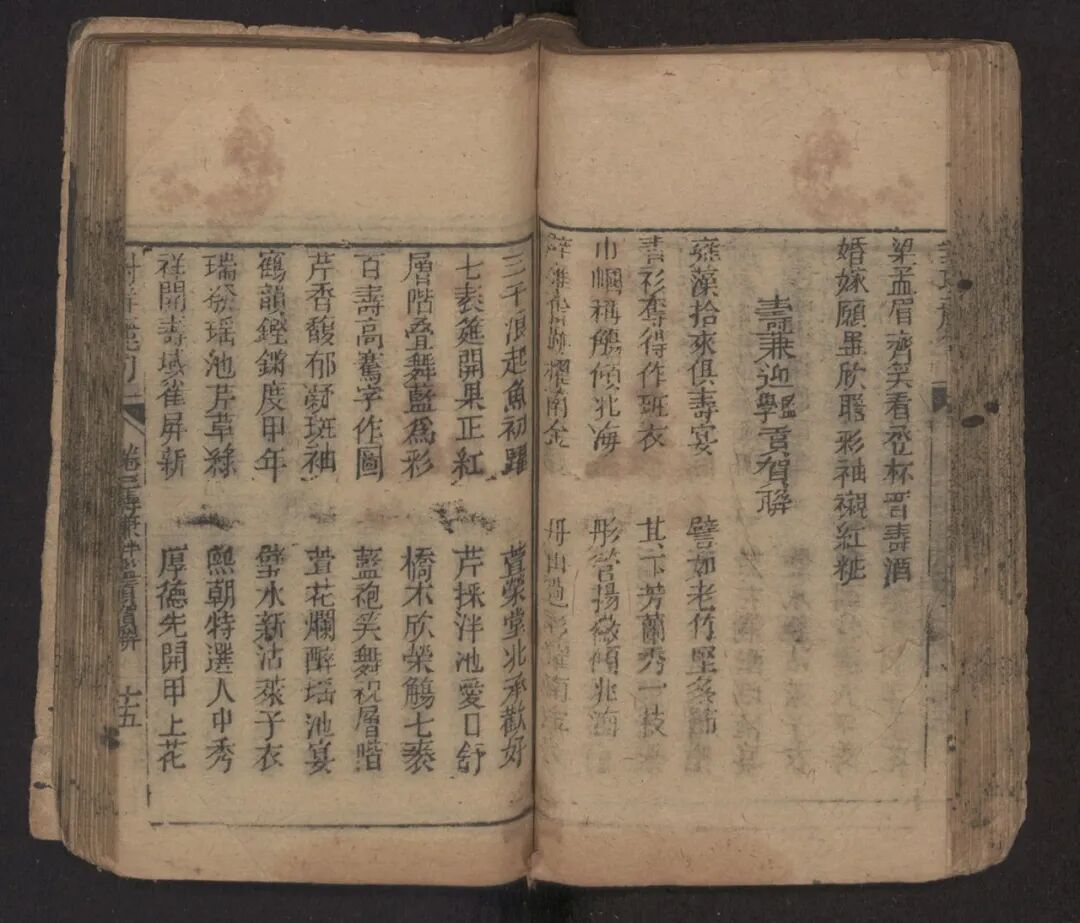 梁孟眉齊笑看丞杯晋壽酒
婚嫁願畢欣聽彩袖襯紅粧
壽兼迎學貢賀聯
藻拾來俱壽宴
譬如老竹堅多節
青衫奪得作班衣
其下芳蘭秀一枝
巾幗稱觴傾北海
彤管揚徽
三千浪起魚初躍
萱榮堂北承歡好
七袠筵開果正紅
芹採泮池愛日舒
層階叠舞藍為彩
橋木欣榮觴七袠
百壽高騫字作圖
藍袍笑舞祝層階
芹香馥郁凝斑袖
萱花爛醉瑶池宴
鶴韻鏗鏘度甲年
璧水新沾萊子衣
瑞發瑶池芹草綠
熙朝特選人中秀
祥開壽域雀屏新
厚德先開甲上花
卷三壽兼
十五